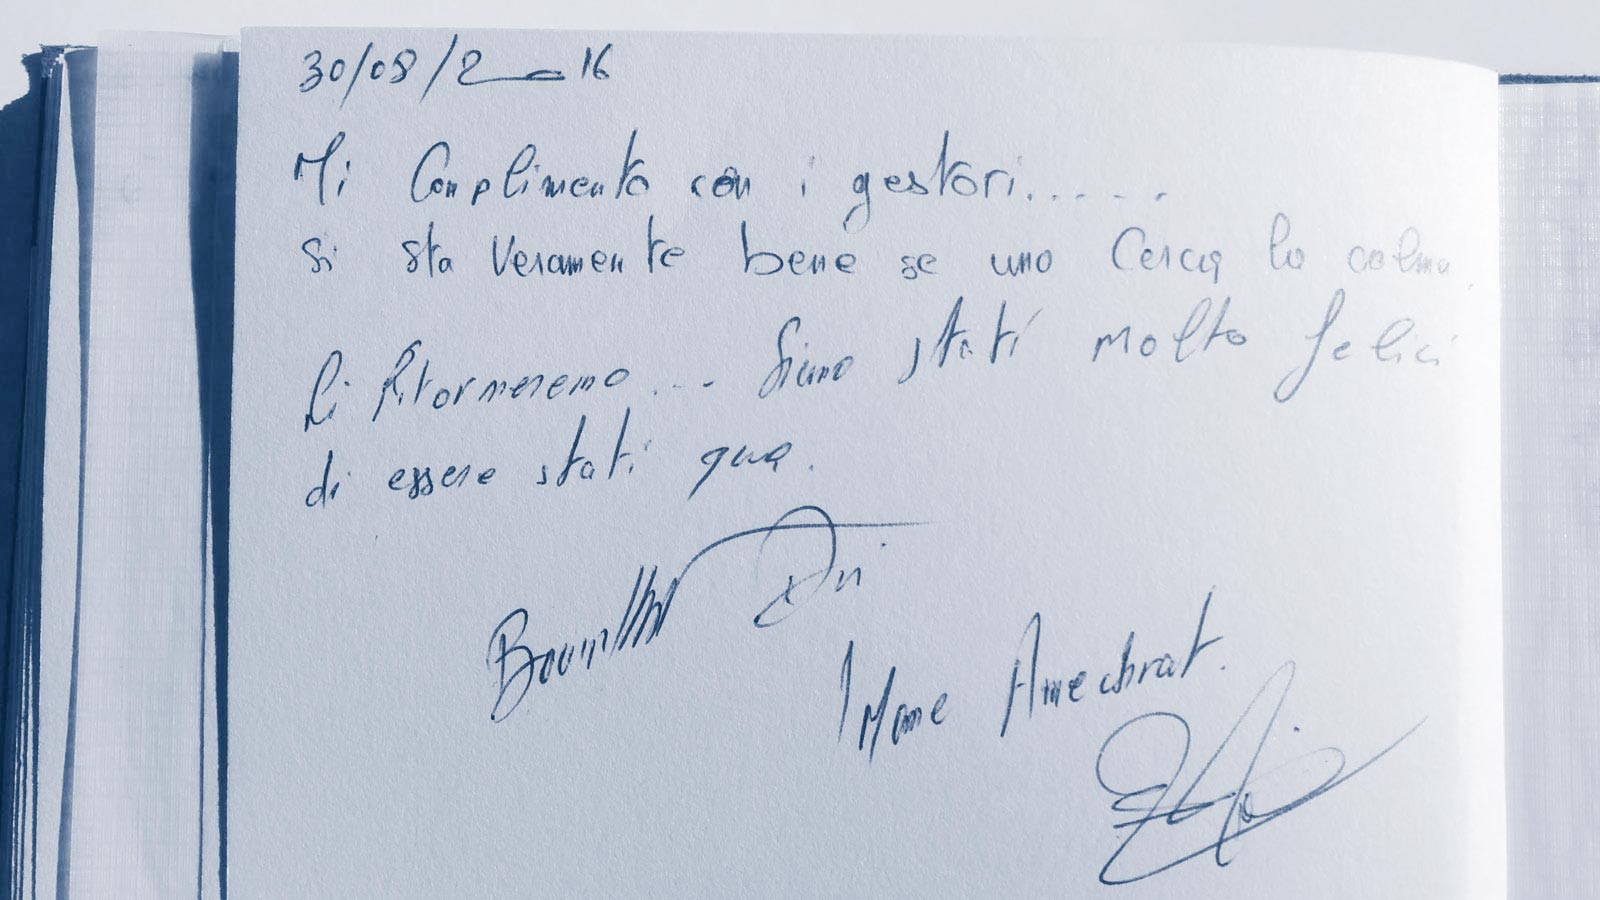 30/08/2016
Mi Complimento con i gestori.....
si sta veramente bene se uno cerca la calma
Ci Ritorneremo... Siamo stati molto felici
di essere stati qua.
Imane Amechrat.